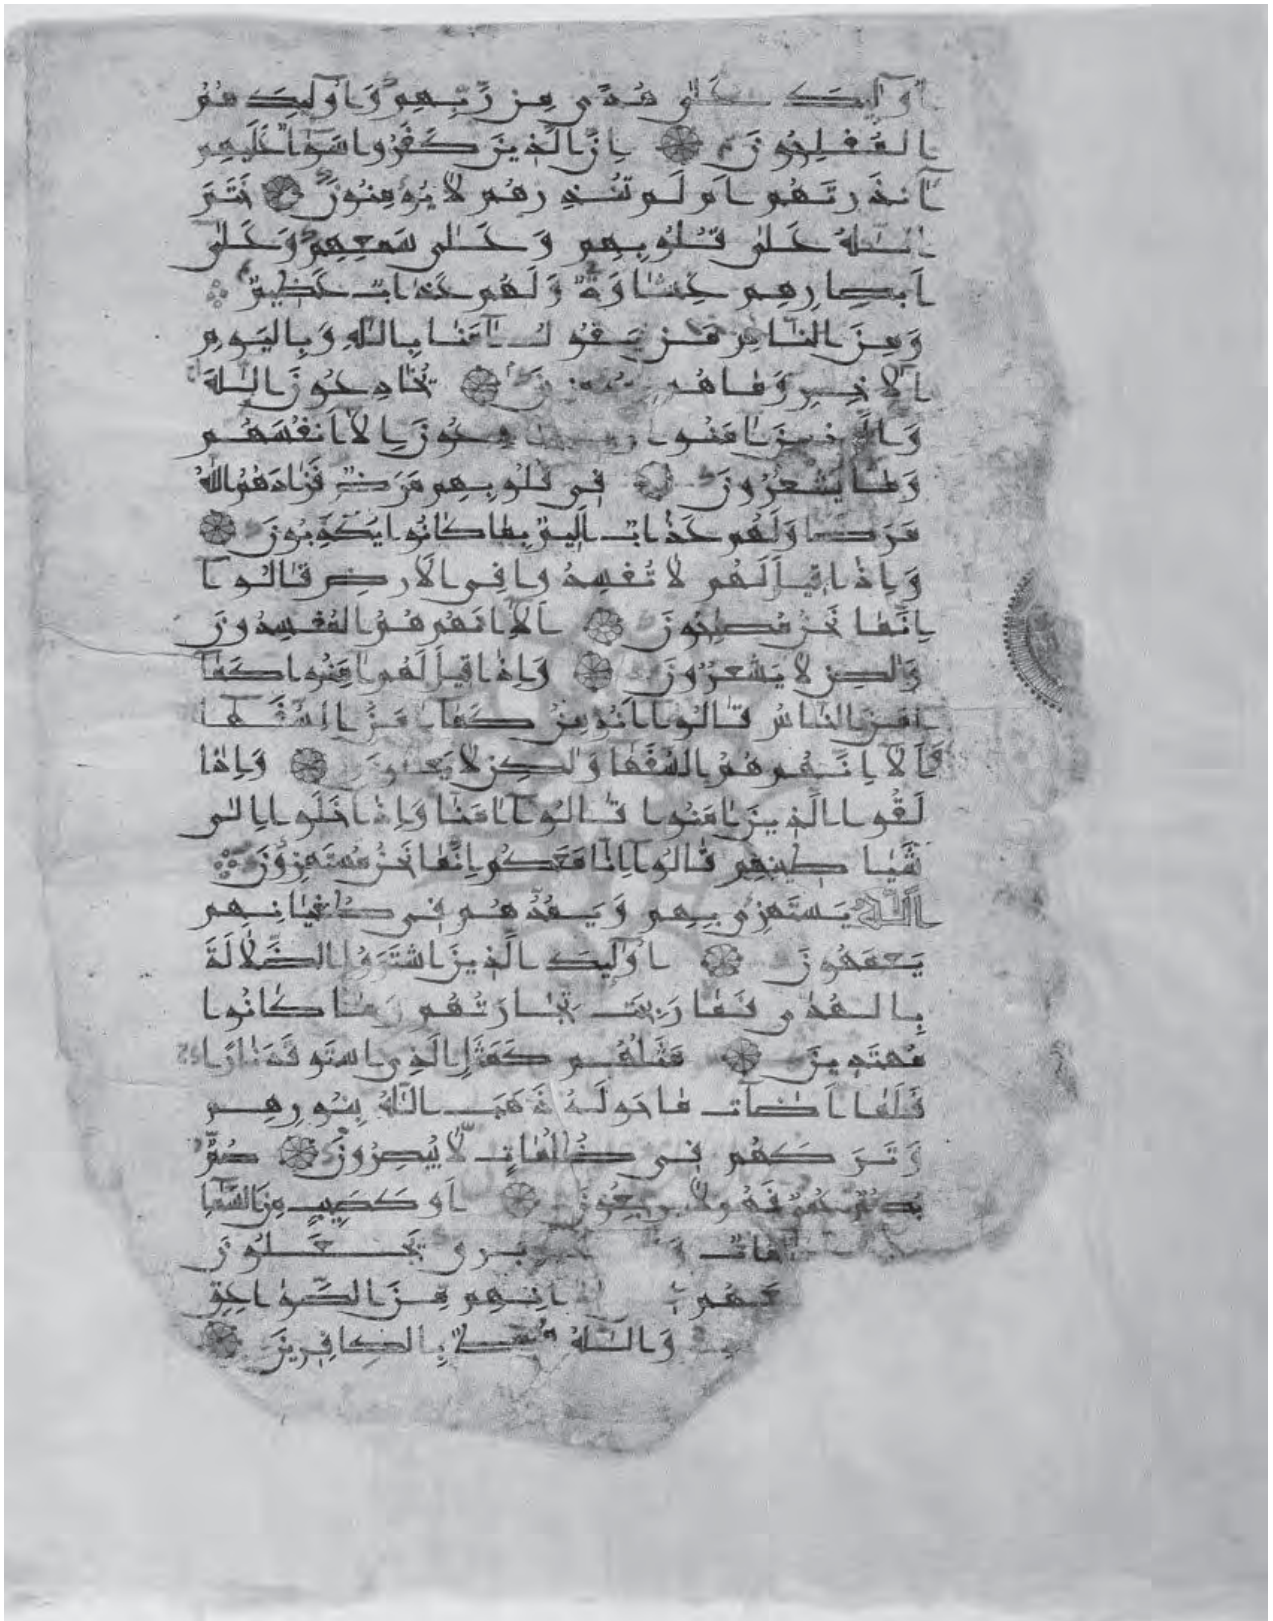 اولىك على هدى من ربهم واولىك هم
المفلحون ان الذين كفروا سوا عليهم
انذرتهم ام لم تنذرهم لا يومنون ختم
الله على قلوبهم وعلى سمعهم وعلى
ابصارهم غشاوة ولهم عذاب عظيم
ومن الناس من يقول امنا بالله وباليوم
الاخر وما هم يخادعون الله
والذين امنوا يخدعون الا انفسهم
وما يشعرون في قلوبهم مرض فزادهم الله
مرضا ولهم عذاب اليم بما كانوا يكذبون
واذا قيل لهم لا تفسدوا في الارض قالوا
انما نحن مصلحون الا انهم هم المفسدون
ولكن لا يشعرون واذا قيل لهم امنوا كما
امن الناس قالوا انومن كما امن السفها
الا انهم هم السفها ولكن لا يعلمون واذا
لقوا الذين امنوا قالوا امنا واذا خلوا الى
شياطينهم قالوا انا معكم انما نحن مستهزون
الله يستهزي بهم ويمدهم في طغيانهم
يعمهون اولىك الذين اشتروا الضلالة
بالهدى فما ربحت تجارتهم وما كانوا
مهتدين مثلهم كمثل الذي استوقد نارا
فلما اضات ما حوله ذهب الله بنورهم
وتركهم في ظلمات لا يبصرون صم
بكم عمي فهم لا يرجعون او كصيب من السما
وبرق يجعلون
اذانهم من الصواعق
والله محيط بالكافرين